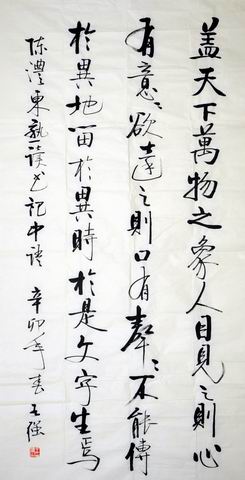 盖天下萬物之象人目見之則心
有意意欲達之則口有聲聲不能傳
於異地留於異時於是文字生焉
陈澧東塾读书记中语 辛卯年春王強